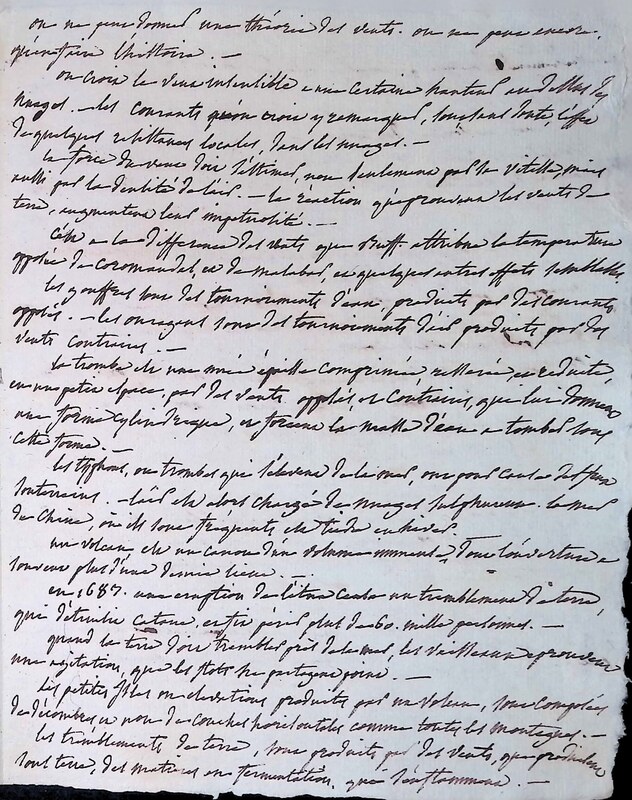 on ne peut donner une théorie des vents. on ne peut encore
qu'en faire l'histoire. —
on croit le vent insensible a une certaine hauteur au dessus des
nuages. — les courants qu'on croit y remarquer, sont sans doute, l'effet
de quelques resistances locales, dans les nuages. —
la force du vent doit s'estimer, non seulement par la vitesse, mais
aussi par la densité de l'air. — la réaction qu'éprouvent les vents de
terre, augmentent leur impétuosité. —
C'est a la difference des vents que Buff. attribue la temperature
opposée de coromandel, et de malabar, et quelques autres effets semblables.
les gouffres sont des tournoiements d'eau produits par des courants
opposés. — les ouragans sont des tournoiements d'air produits par des
vents contraires. —
la trombe est une nuée épaisse comprimée, resserrée, et reduite
en un petit espace, par des vents opposés, et contraires, qui lui donnent
une forme cylindrique, et forcent la masse d'eau a tomber sous
cette forme. —
les typhons, ou trombes qui s'élevent de la mer, ont pour cause des feux
souterrains. — l'air est alors chargé de nuages sulphureux. la mer
de Chine, où ils sont frequents est tiede en hiver.
un volcan, est un canon d'un volume immense, dont l'ouverture a
souvent plus d'une demie lieue. —
en 1687. une eruption de l'etna causa un tremblement de terre,
qui détruisit Catane, et fit périr plus de 60. mille personnes. —
quand la terre doit trembler près de la mer, les vaisseaux eprouvent
une agitation, que les flots ne partagent point. —
les petites isles ou elevations produites par un volcan, sont composées
de décombres et non de couches horisontales comme toutes les montagnes. —
les tremblements de terre, sont produits par des vents, que produisent
sous terre, des matieres en fermentation, qui s'enflamment. —